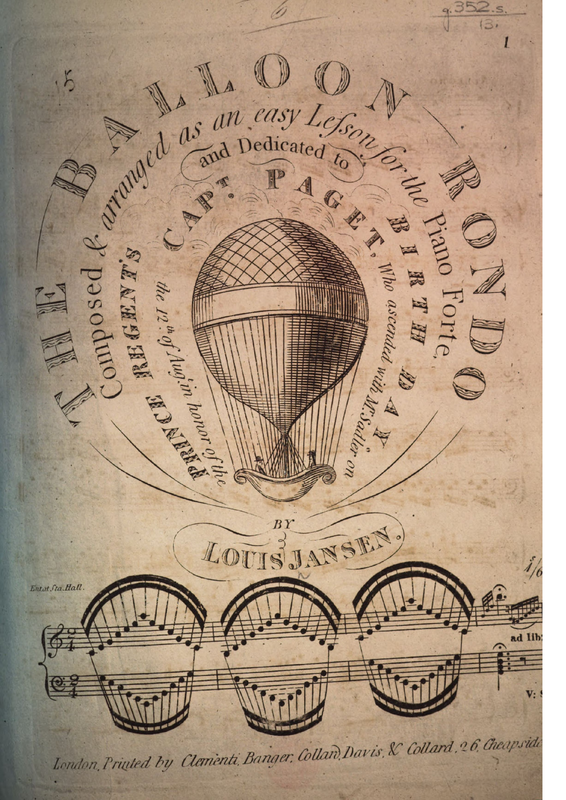 g.352.s.
13.
1
15
THE BALLOON RONDO
Composed & arranged as an easy Leſson for the Piano Forte
and Dedicated to
CAPT. PAGET,
Who ascended with Mr. Sadler on
the 12th. of Augt. in honor of the
PRINCE REGENT'S BIRTH DAY
BY
LOUIS JANSEN.
Ent. at Sta. Hall.
ad lib:
V: S
London, Printed by Clementi, Banger, Collard, Davis, & Collard, 26, Cheapside